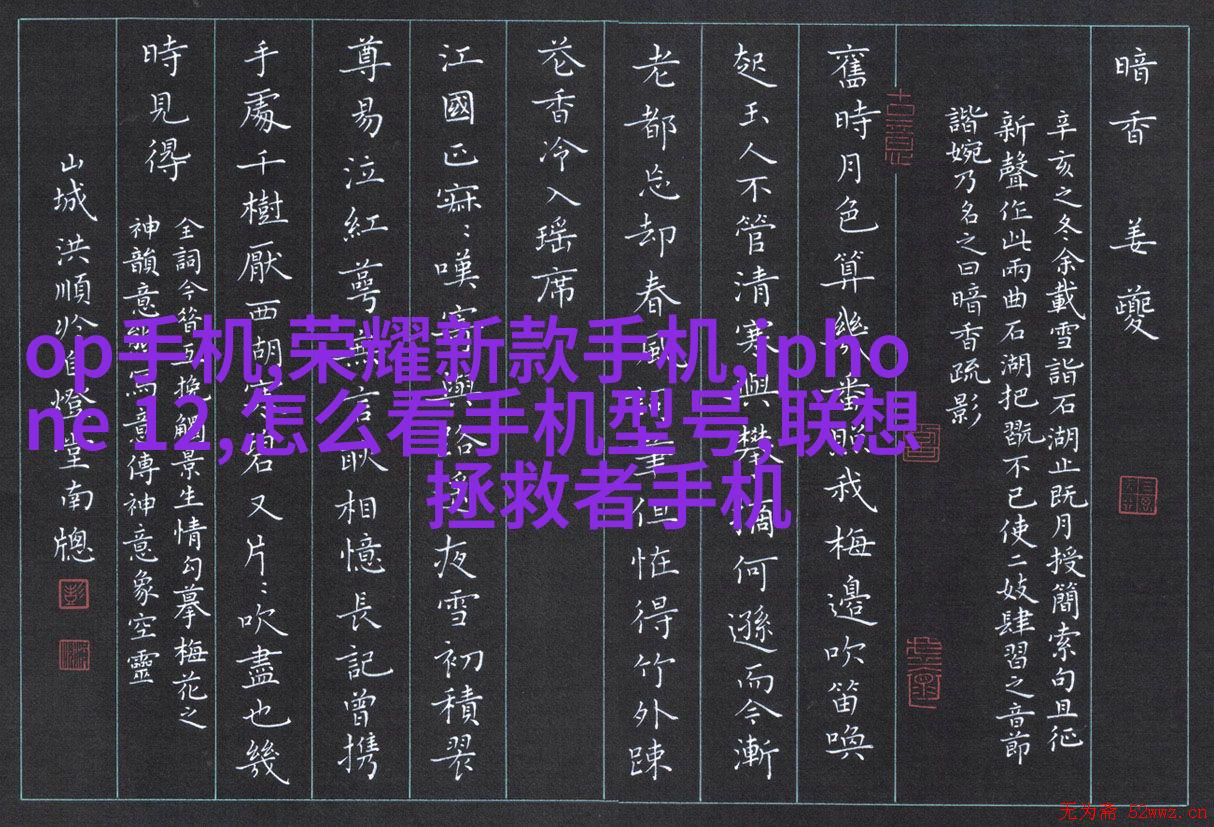 暗香 姜夔
辛亥之冬余載雪詣石湖止既月授簡索句且征
新聲作此兩曲石湖把翫不已使二妓肆習之音節
諧婉乃名之曰暗香疏影
古意
舊時月色算幾番照我梅邊吹笛喚
起玉人不管清寒與攀摘何遜而今漸
老都忘却春風詞筆但恠得竹外疎
花香冷入瑶席
江國正寂：嘆寄與路遥夜雪初積翠
尊易泣紅萼無言耿相憶長記曾携
手處千樹厭西湖寒碧又片：吹盡也幾
時見得
全詞今昔互挽觸景生情勾摹梅花之
神韻意寫意傳神意象空靈
山城洪順燈堂南牕
op手机,荣耀新款手机,ipho
ne 12,怎么看手机型号,联想
拯救者手机
无为斋 52wwz.cn